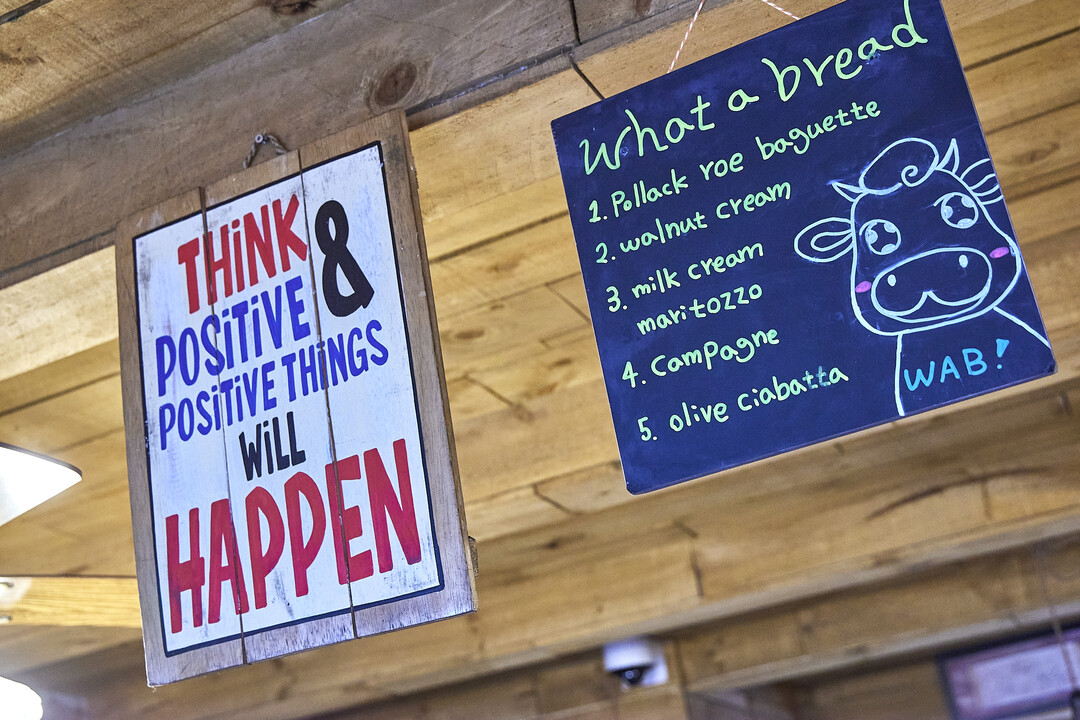 THiNK &
POSiTiVE
POSiTiVE THiNGS
WiLL
HAPPEN
What a bread
1. Pollack roe baguette
2. walnut cream
3. milk cream
maritozzo
4. Campagne
5. olive ciabatta
WAB!